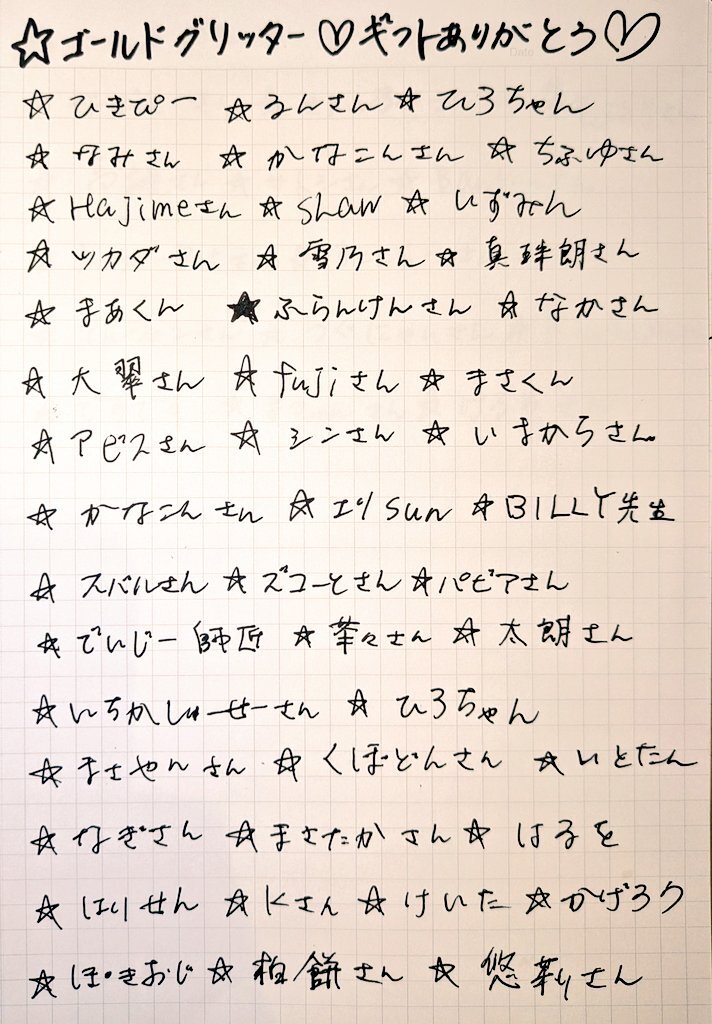 ☆ゴールドグリッター♡ギフトありがとう♡
☆ ひきぴー ☆ るんさん ☆ ひろちゃん
☆ なみさん ☆ かなこんさん ☆ ちふゆさん
☆ Hajimeさん ☆ shaw ☆ いずみん
☆ ツカダさん ☆ 雪乃さん ☆ 真珠朗さん
☆ まぁくん ★ ふらんけんさん ☆ なかさん
☆ 大翠さん ☆ fujiさん ☆ まさくん
☆ アビスさん ☆ シンさん ☆ いまからさん
☆ かなこんさん ☆ エリsun ☆ BILLY先生
☆ スバルさん ☆ ズコーとさん ☆ パピアさん
☆ でいじー師匠 ☆ 華々さん ☆ 太朗さん
☆ いちかしゅーせーさん ☆ ひろちゃん
☆ まさやんさん ☆ くぼどんさん ☆ いとたん
☆ なぎさん ☆ まさたかさん ☆ はるを
☆ はりせん ☆ Kさん ☆ けいた ☆ かげろう
☆ ぽきおじ ☆ 柏餅さん ☆ 悠さん